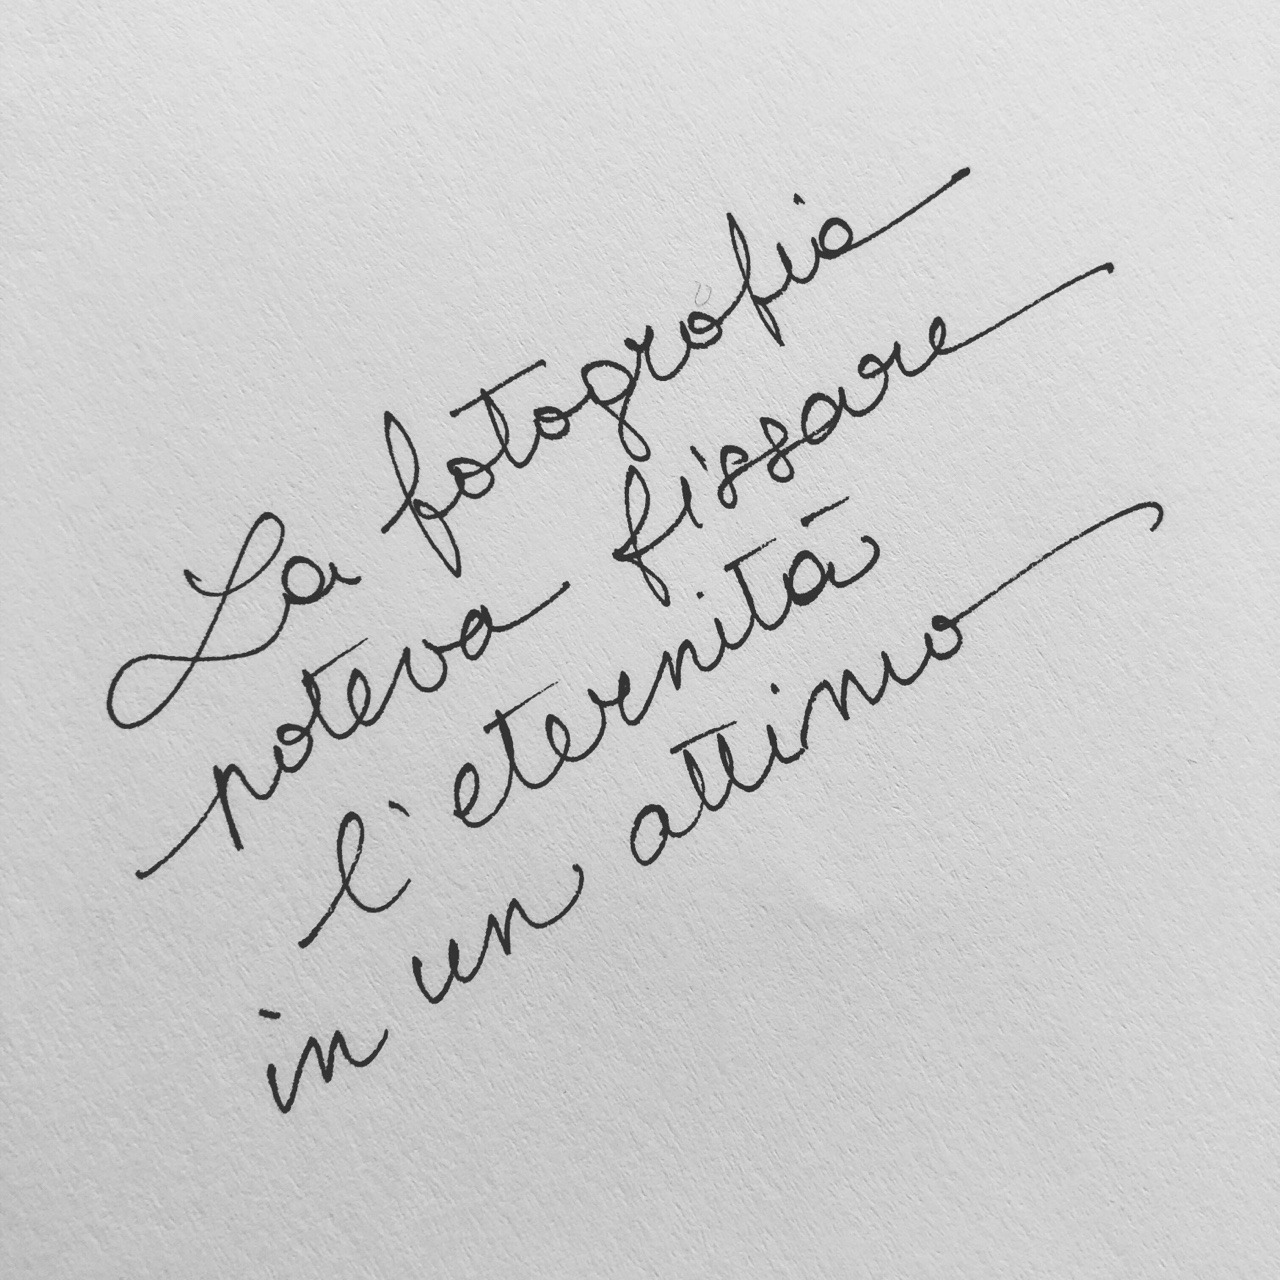 La fotografia
poteva fissare
l'eternità
in un attimo